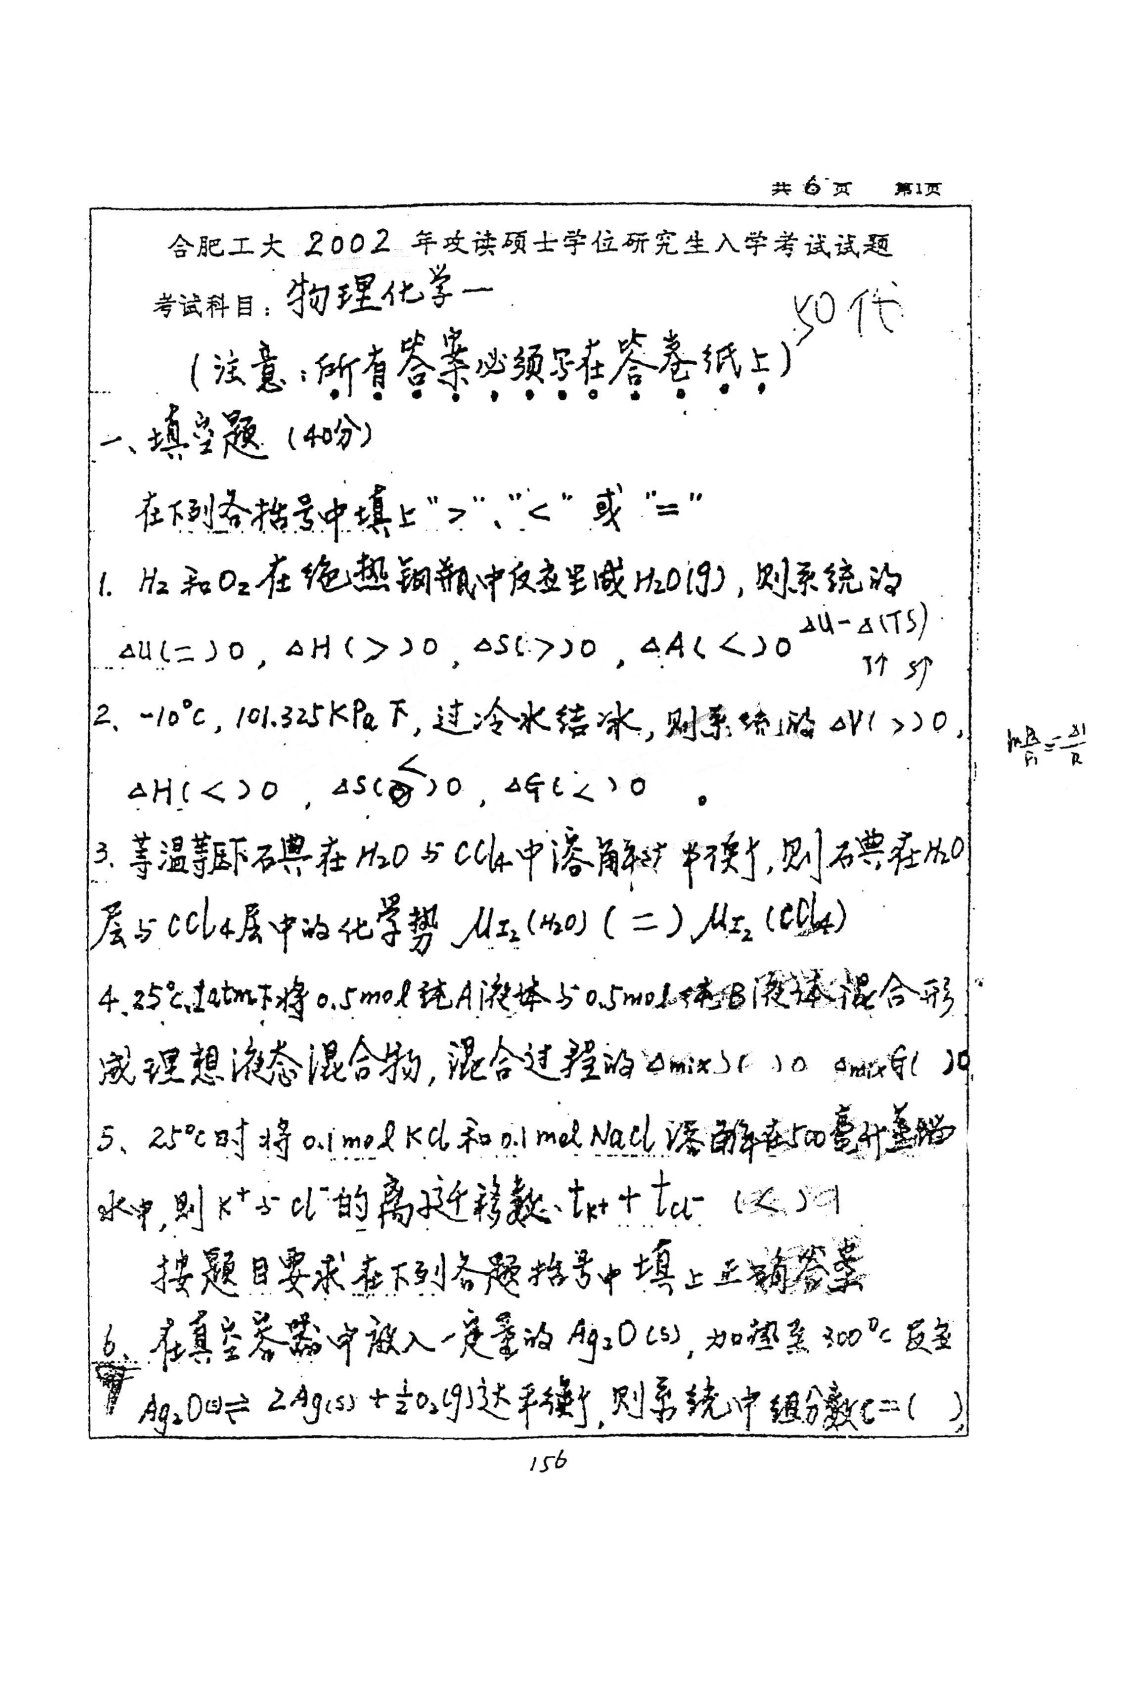 共6页 第1页
合肥工大 2002 年攻读硕士学位研究生入学考试试题
考试科目：物理化学一
50代
(注意：所有答案必须写在答卷纸上)
一、填空题 (40分)
在下列各括号中填上">"、"<" 或 "="
1. H₂ 和 O₂ 在绝热钢瓶中反应生成 H₂O(g)，则系统的
ΔU(=)0，ΔH(>)0，ΔS(>)0，ΔA(<)0 ΔU-Δ(TS)
T↑ S↑
2、-10°C，101.325KPa下，过冷水结冰，则系统的 ΔV(>)0，
ΔH(<)0，ΔS(<)0，ΔG(<)0 。
3. 等温等压下石典在 H₂O 与 CCl₄ 中溶解达平衡，则石典在 H₂O
层与 CCl₄ 层中的化学势 μI₂(H₂O) (=) μI₂(CCl₄)
4. 25°C、1atm下将 0.5mol 纯A液体与 0.5mol 纯B液体混合形
成理想液态混合物，混合过程的 Δmix ( )0 ΔmixG( )0
5、25°C时将 0.1mol KCl 和 0.1mol NaCl 溶解在500毫升蒸馏
水中，则 K⁺与 Cl⁻的离子迁移数 tK⁺ + tCl⁻ (<)1
按题目要求在下列各题括号中填上正确答案
6、在真空容器中放入一定量的 Ag₂O(s)，加热至 300°C 反应
Ag₂O(s)⇌ 2Ag(s) + ½O₂(g)达平衡，则系统中组分数C=( )，
156